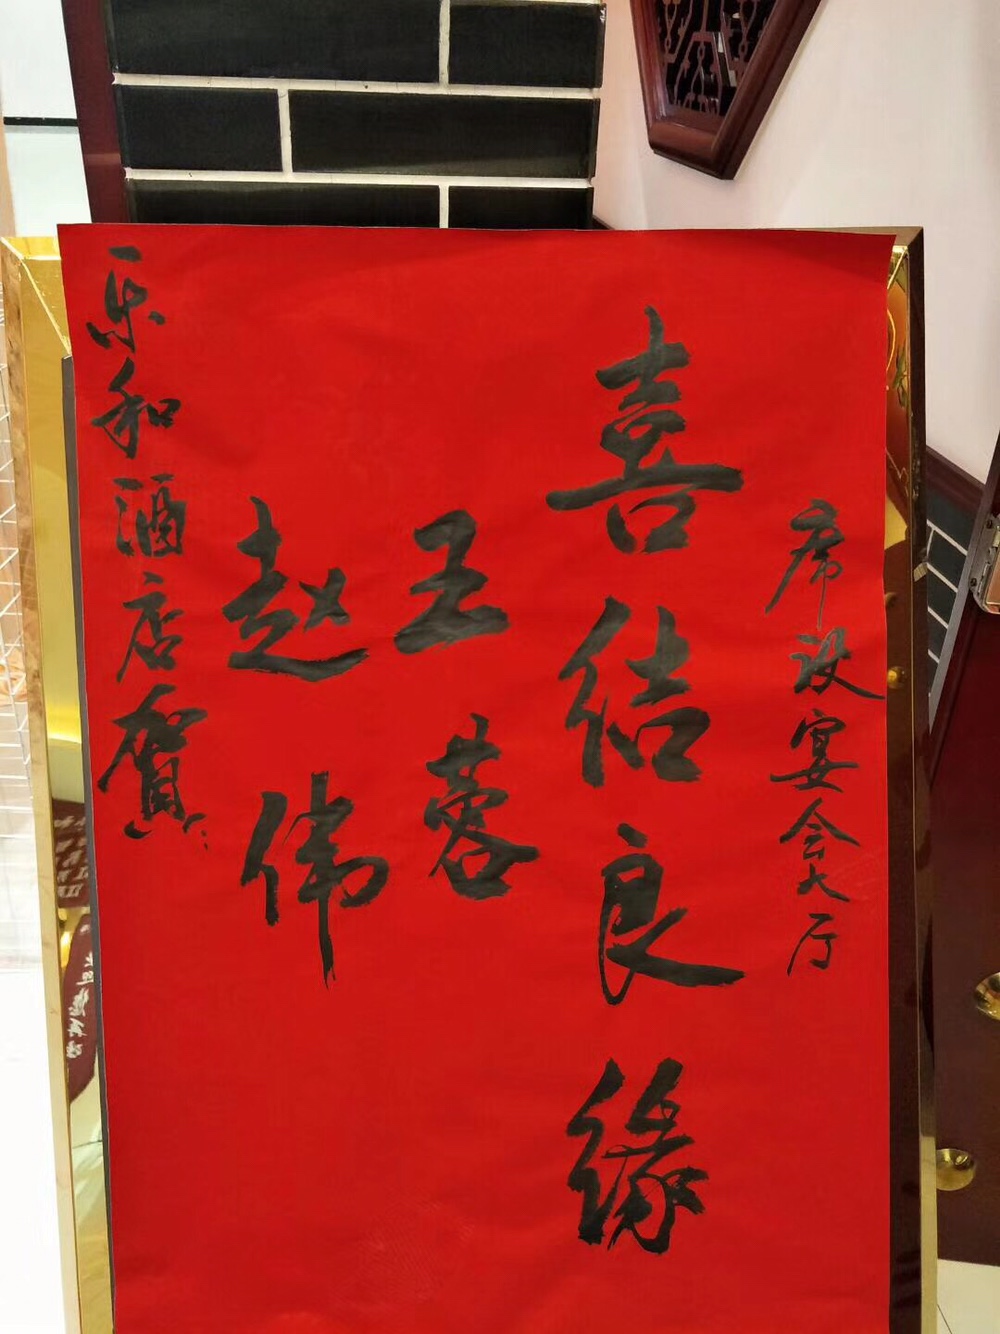 席设宴会大厅
喜结良缘
王蓉
赵伟
乐和酒店贺